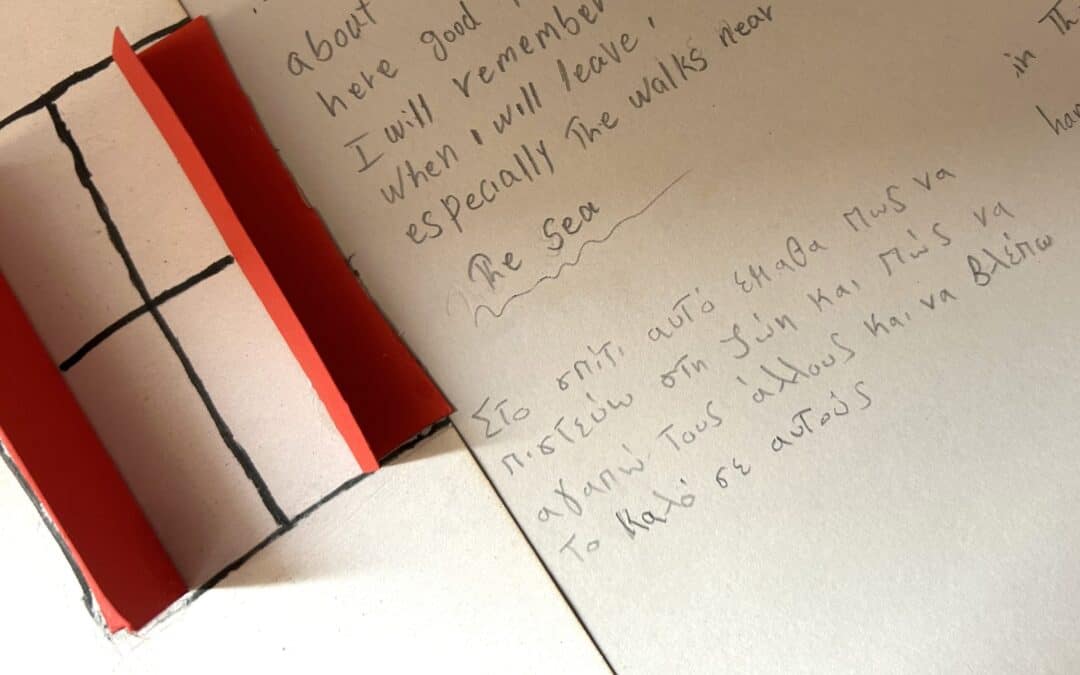 about
here good
I will remember
when I will leave,
especially The walks near
The Sea
in Th
har
Στο σπίτι αυτό έμαθα πως να
πιστεύω στη ζώη και πώς να
αγαπώ τους άλλους και να βλέπω
το καλό σε αυτούς